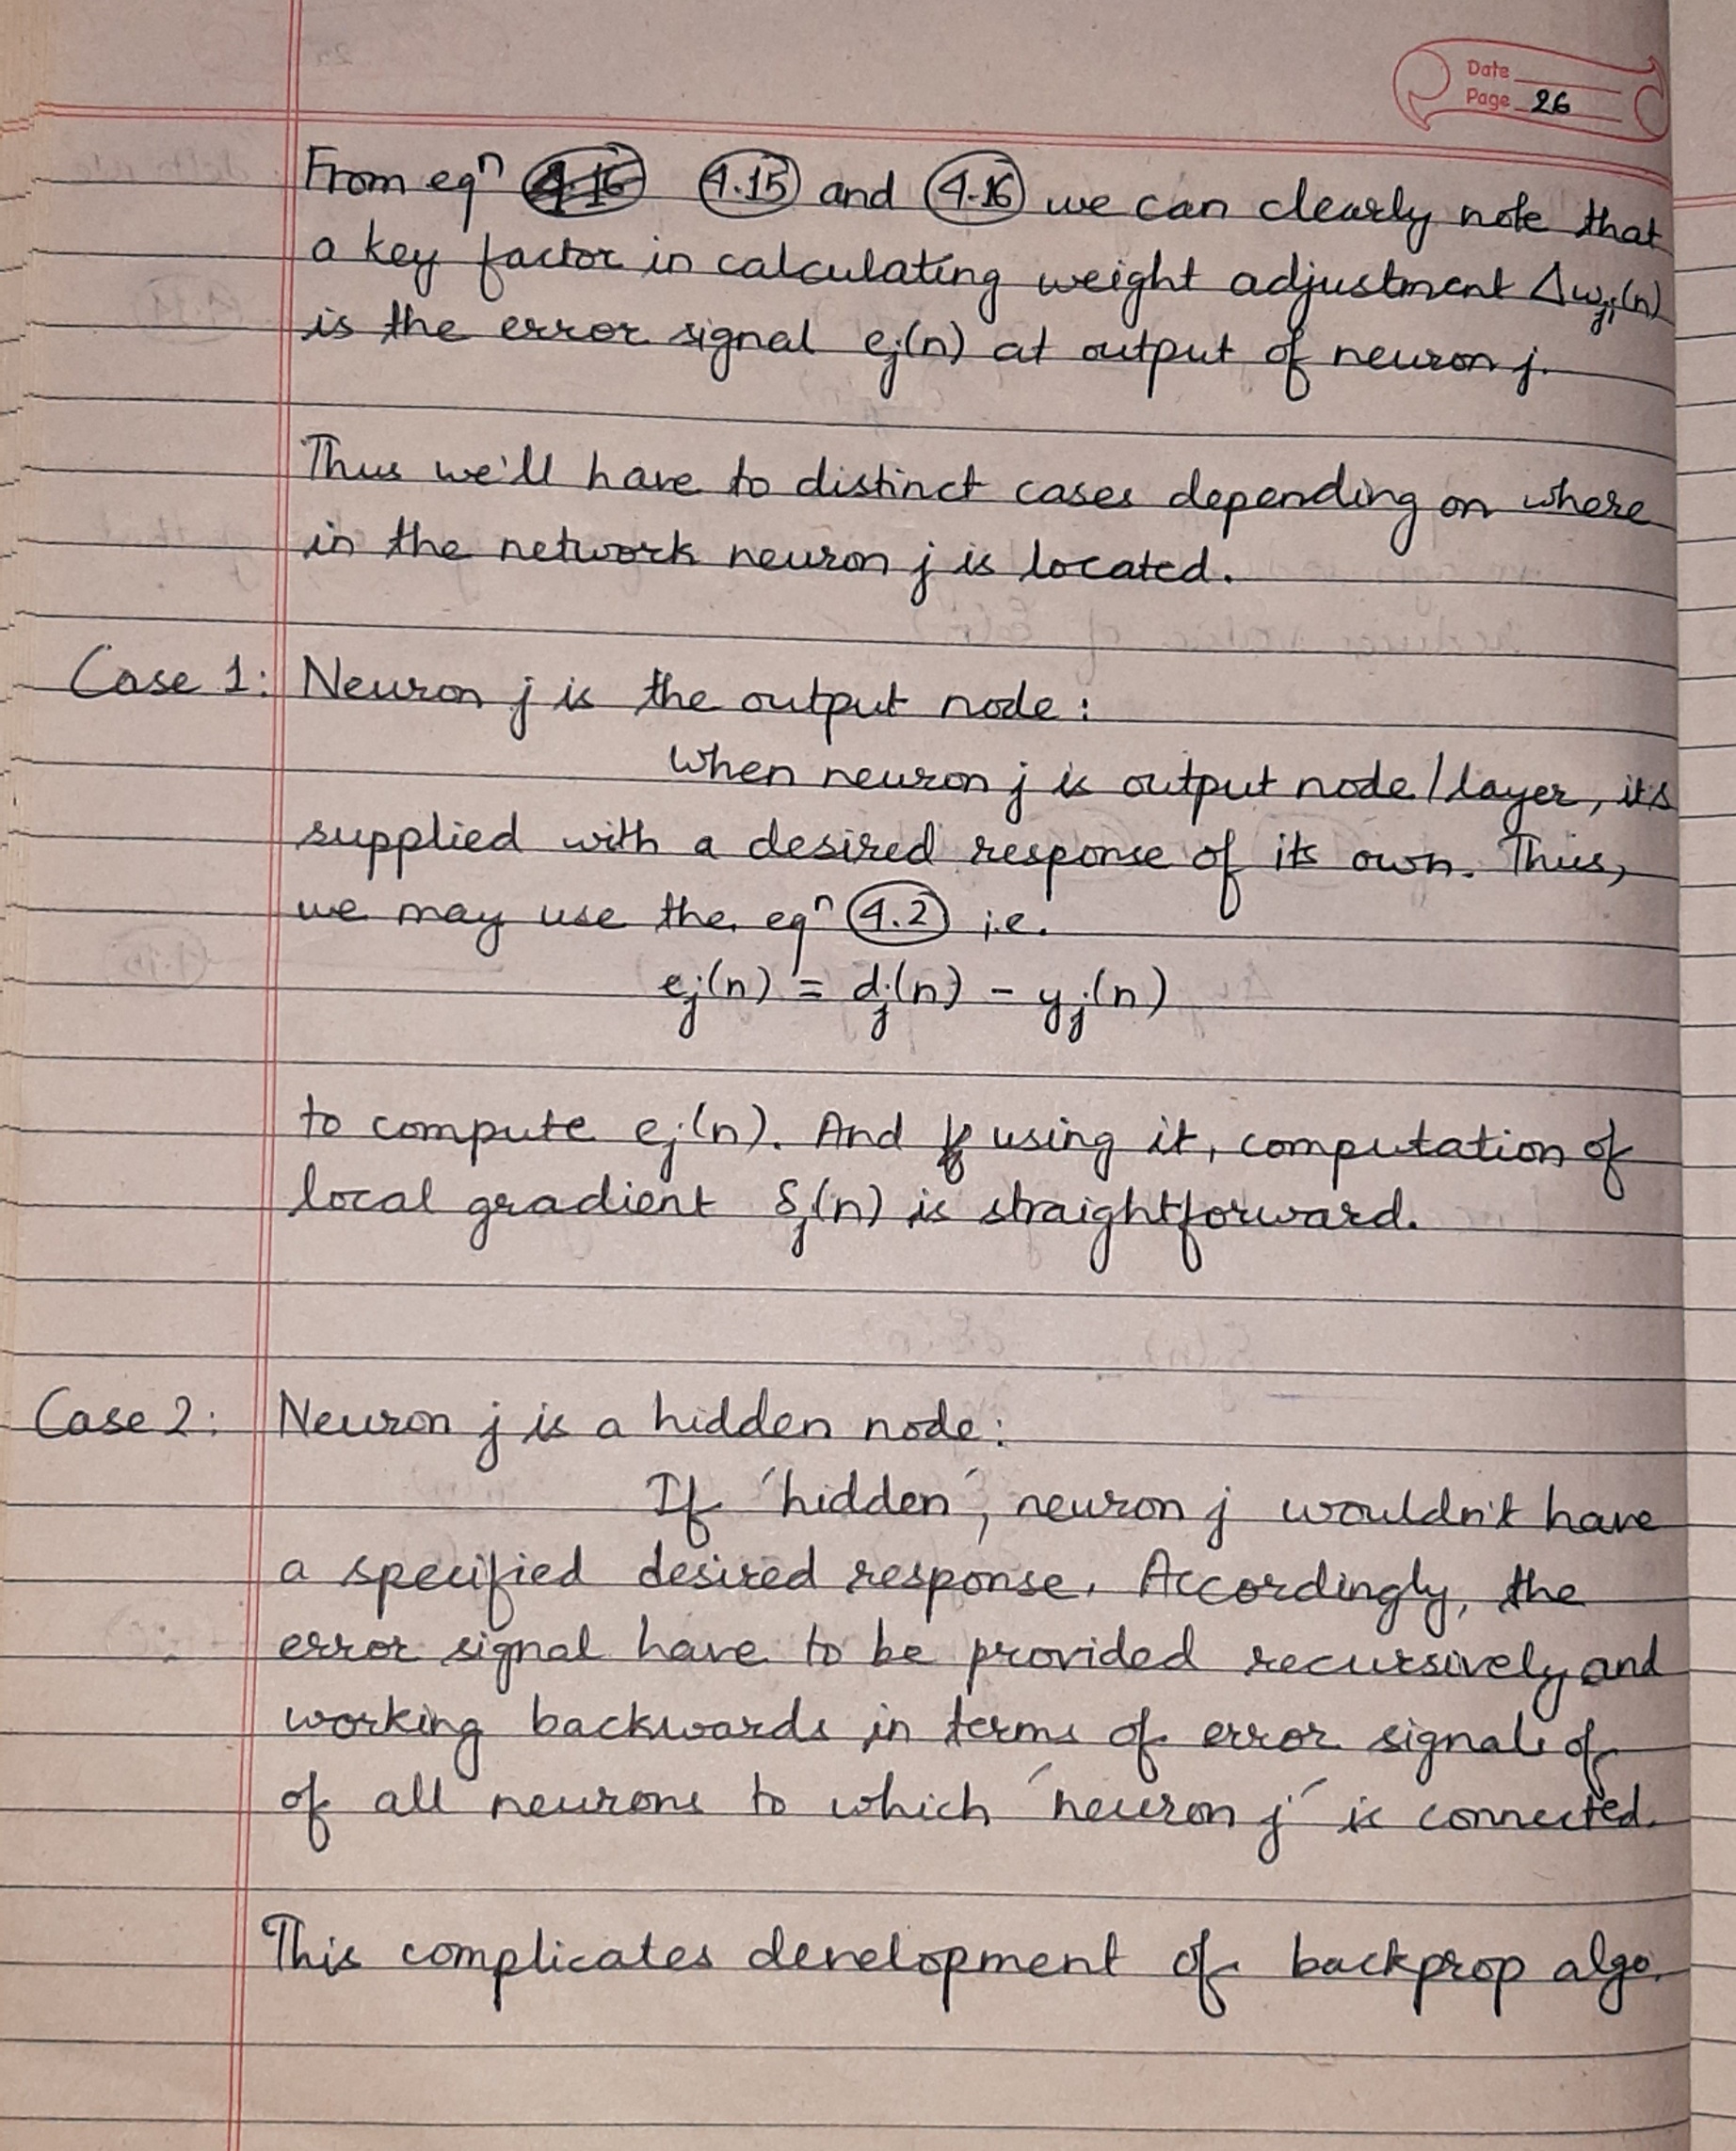 Date
Page 26
From eqⁿ 4.15 and 4.16 we can clearly note that
a key factor in calculating weight adjustment Δwⱼᵢ(n)
is the error signal eⱼ(n) at output of neuron j.
Thus we'll have to distinct cases depending on where
in the network neuron j is located.
Case 1: Neuron j is the output node:
When neuron j is output node/layer, its
supplied with a desired response of its own. Thus,
we may use the eqⁿ 4.2 i.e.
eⱼ(n) = dⱼ(n) - yⱼ(n)
to compute eⱼ(n). And using it, computation of
local gradient δⱼ(n) is straightforward.
Case 2: Neuron j is a hidden node:
If 'hidden', neuron j wouldn't have
a specified desired response. Accordingly, the
error signal have to be provided recursively and
working backwards in terms of error signals of
of all neurons to which 'neuron j' is connected.
This complicates development of backprop algo.